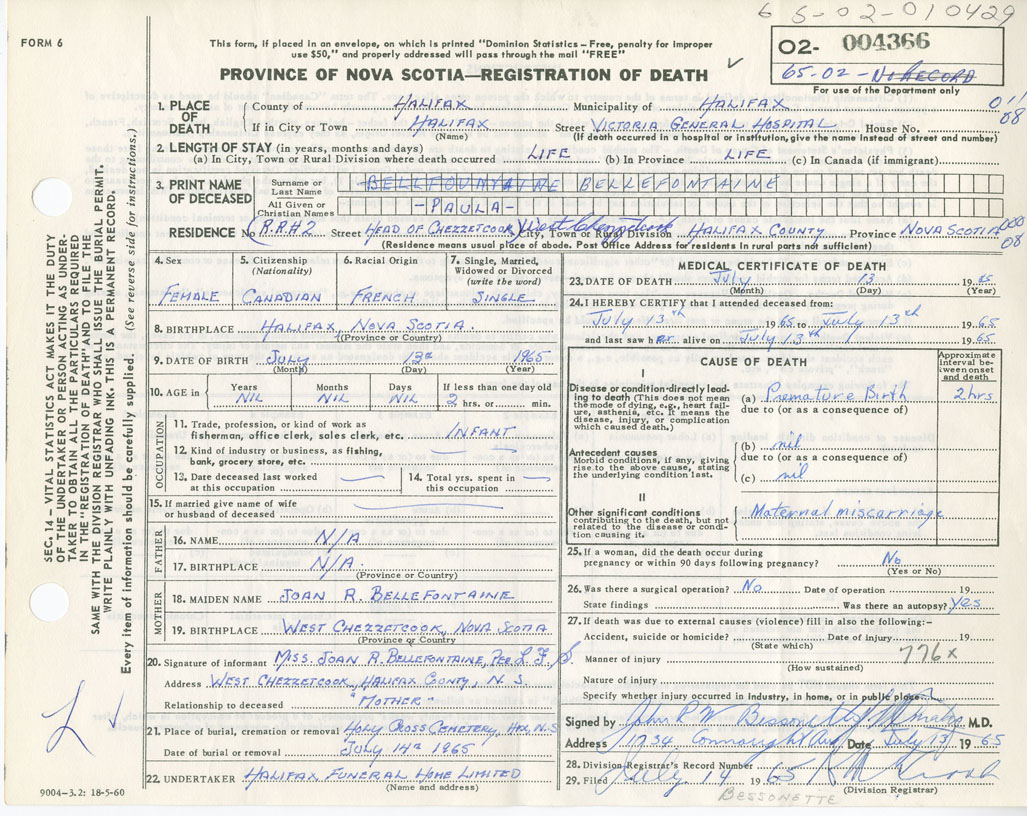 65-02-010429
FORM 6
This form, if placed in an envelope, on which is printed "Dominion Statistics – Free, penalty for improper
use $50," and properly addressed will pass through the mail "FREE"
02- 004366
65-02 - NO RECORD
For use of the Department only
PROVINCE OF NOVA SCOTIA—REGISTRATION OF DEATH
1. PLACE OF DEATH
County of HALIFAX Municipality of HALIFAX 011
08
If in City or Town HALIFAX Street VICTORIA GENERAL HOSPITAL House No.
(Name) (If death occurred in a hospital or institution, give the name instead of street and number)
2. LENGTH OF STAY (in years, months and days)
(a) In City, Town or Rural Division where death occurred LIFE (b) In Province LIFE (c) In Canada (if immigrant)
3. PRINT NAME OF DECEASED
Surname or Last Name BELLEFONTAINE
All Given or Christian Names -PAULA-
RESIDENCE No. R.R#2 Street HEAD OF CHEZZETCOOK West Chezzetcook City, Town or Rural Division HALIFAX COUNTY Province NOVA SCOTIA 000
08
(Residence means usual place of abode. Post Office Address for residents in rural parts not sufficient)
SEC. 14 – VITAL STATISTICS ACT MAKES IT THE DUTY
OF THE UNDERTAKER OR PERSON ACTING AS UNDER-
TAKER TO OBTAIN ALL THE PARTICULARS REQUIRED
IN THE "REGISTRATION OF DEATH" AND FILE THE
SAME WITH THE DIVISION REGISTRAR WHO SHALL ISSUE THE BURIAL PERMIT.
WRITE PLAINLY WITH UNFADING INK–THIS IS A PERMANENT RECORD.
Every item of information should be carefully supplied. (See reverse side for instructions.)
4. Sex
FEMALE
5. Citizenship
(Nationality)
CANADIAN
6. Racial Origin
FRENCH
7. Single, Married,
Widowed or Divorced
(write the word)
SINGLE
8. BIRTHPLACE HALIFAX, NOVA SCOTIA.
(Province or Country)
9. DATE OF BIRTH JULY 13th 1965
(Month) (Day) (Year)
10. AGE in
Years NIL
Months NIL
Days NIL
If less than one day old
2 hrs. or min.
OCCUPATION
11. Trade, profession, or kind of work as
fisherman, office clerk, sales clerk, etc. INFANT
12. Kind of industry or business, as fishing,
bank, grocery store, etc.
13. Date deceased last worked
at this occupation
14. Total yrs. spent in
this occupation
15. If married give name of wife
or husband of deceased
FATHER
16. NAME N/A
17. BIRTHPLACE N/A.
(Province or Country)
MOTHER
18. MAIDEN NAME JOAN R. BELLEFONTAINE
19. BIRTHPLACE WEST CHEZZETCOOK, NOVA SCOTIA
(Province or Country)
20. Signature of informant MISS JOAN R. BELLEFONTAINE, PER L. F. S.
Address WEST CHEZZETCOOK, HALIFAX COUNTY, N. S.
Relationship to deceased "MOTHER"
21. Place of burial, cremation or removal HOLY CROSS CEMETERY, HFX, N.S
Date of burial or removal JULY 14th 1965
22. UNDERTAKER HALIFAX FUNERAL HOME LIMITED
(Name and address)
9004–3.2: 18-5-60
MEDICAL CERTIFICATE OF DEATH
23. DATE OF DEATH July 13 1965
(Month) (Day) (Year)
24. I HEREBY CERTIFY that I attended deceased from:
July 13th 1965 to July 13th 1965
and last saw her alive on July 13th 1965
CAUSE OF DEATH
Approximate
interval be-
tween onset
and death
I
Disease or condition directly lead-
ing to death (This does not mean
the mode of dying, e.g., heart fail-
ure, asthenia, etc. It means the
disease, injury, or complication
which caused death.)
(a) Premature Birth 2 hrs
due to (or as a consequence of)
Antecedent causes
Morbid conditions, if any, giving
rise to the above cause, stating
the underlying condition last.
(b) nil
due to (or as a consequence of)
(c) nil
II
Other significant conditions
contributing to the death, but not
related to the disease or condi-
tion causing it.
Maternal miscarriage
25. If a woman, did the death occur during
pregnancy or within 90 days following pregnancy? No
(Yes or No)
26. Was there a surgical operation? No Date of operation 19
State findings Was there an autopsy? Yes
27. If death was due to external causes (violence) fill in also the following:–
Accident, suicide or homicide? Date of injury 19
(State which)
Manner of injury 776x
(How sustained)
Nature of injury
Specify whether injury occurred in industry, in home, or in public place
Signed by John R W Bessonette M.D.
Address 1734 Connaught Ave Date July 13 1965
28. Division Registrar's Record Number
29. Filed July 14 1965
(Division Registrar)
BESSONETTE